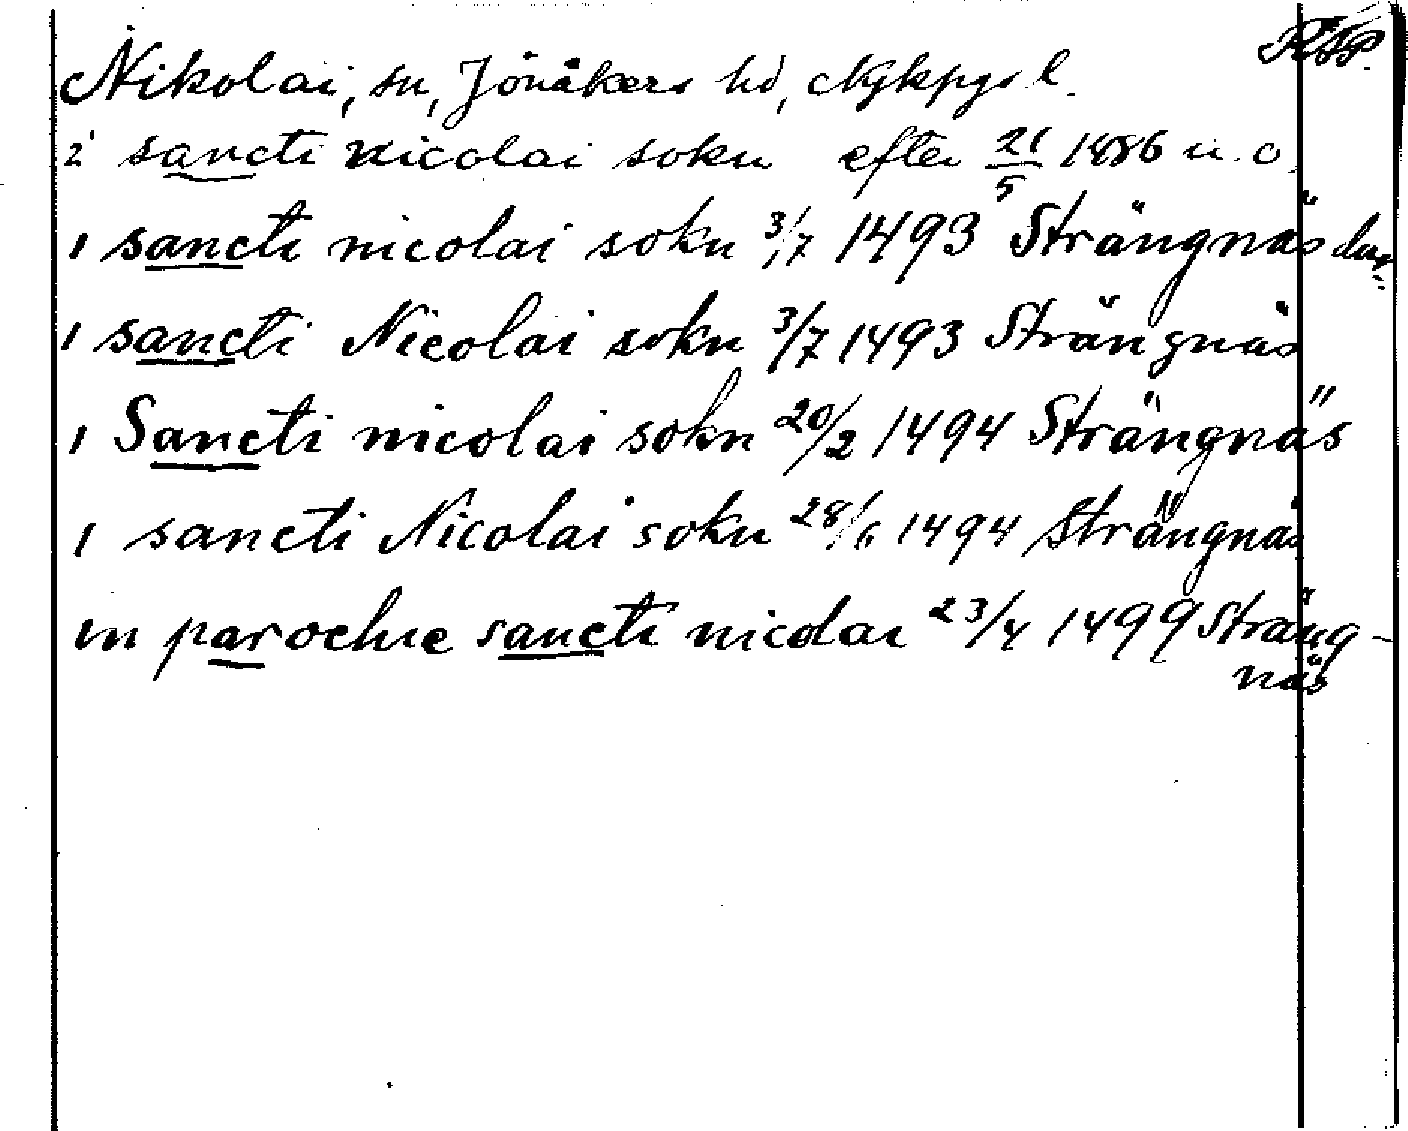 RAP.
Nikolai, sn, Jönåkers hd, Nykpgs l.
i sancti nicolai sokn efter 21/5 1486 u. o.
i sancti nicolai sokn 3/7 1493 Strängnäs
i sancti Nicolai sokn 3/7 1493 Strängnäs
i Sancti nicolai sokn 20/2 1494 Strängnäs
i sancti Nicolai sokn 28/6 1494 Strängnäs
in parochie sancti nicolai 23/4 1499 Sträng-
näs